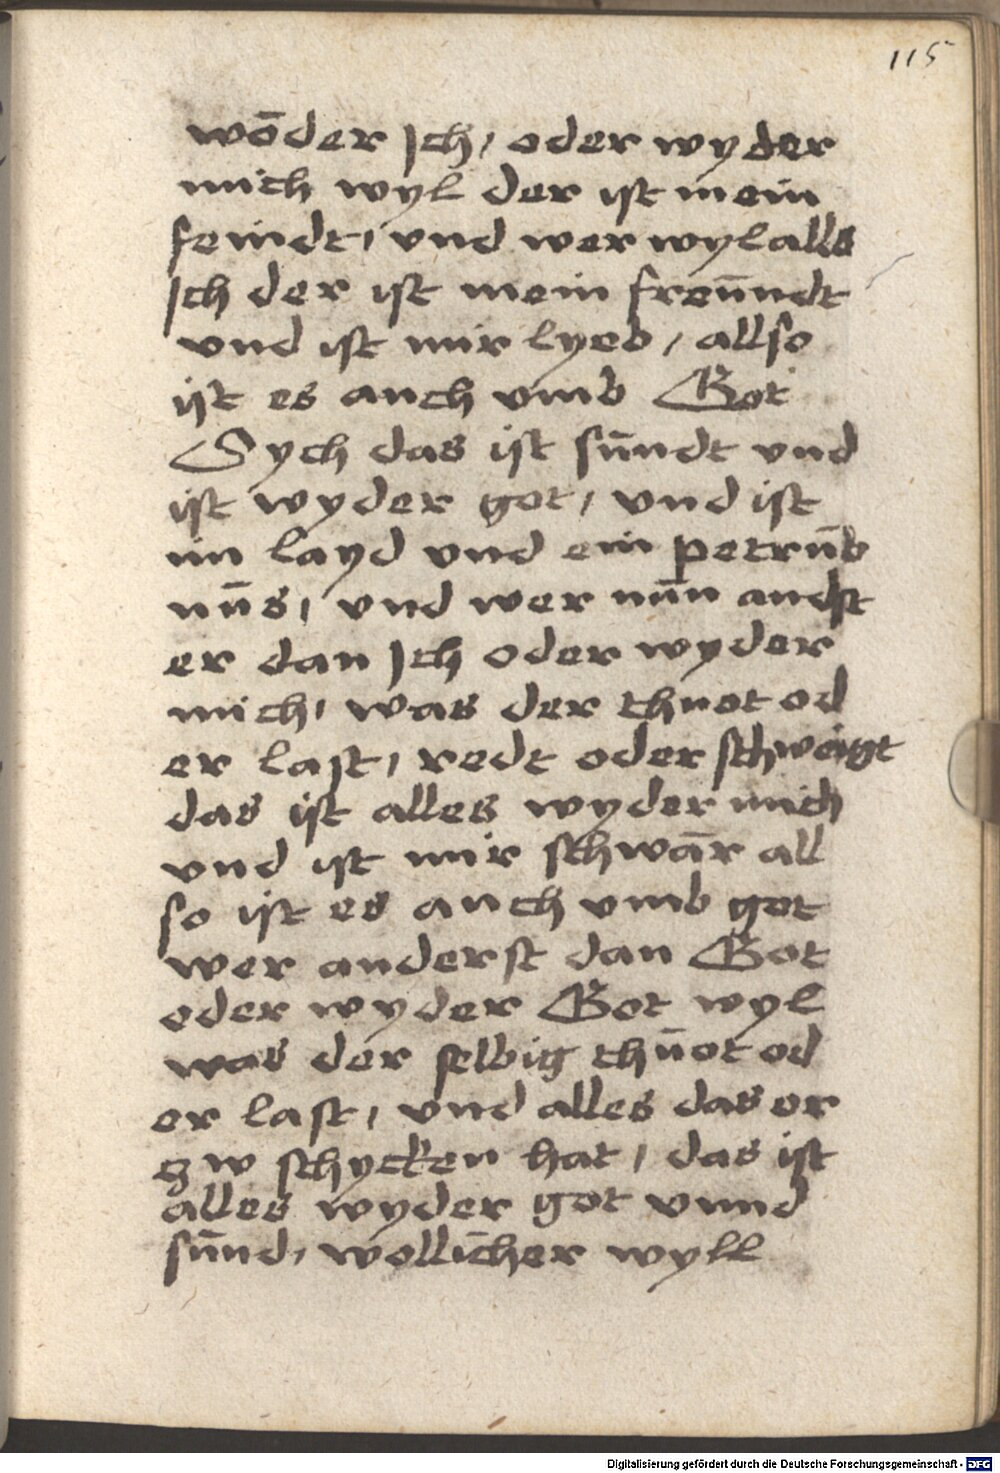 115
wōder Jch, oder wyder
mich wyl der ist mein
feindt, vnd wer wyl alls
Jch der ist mein freūndt
vnd ist mir lyeb, allso
ist es auch vmb Got
Sych das ist sūndt vnd
ist wyder got, vnd ist
im layd vnd ein petrūb
nūs, vnd wer nūn andst
er dan Jch oder wyder
mich, was der thuot od
er last, redt oder schweigt
das ist alles wyder mich
vnd ist mir schwār all
so ist es auch vmb got
wer anderst dan Got
oder wyder Got wyl
was der selbig thūot od
er last, vnd alles das er
zw schycken hat, das ist
alles wyder got vnnd
sūnd, wollicher wyll
Digitalisierung gefördert durch die Deutsche Forschungsgemeinschaft - DFG